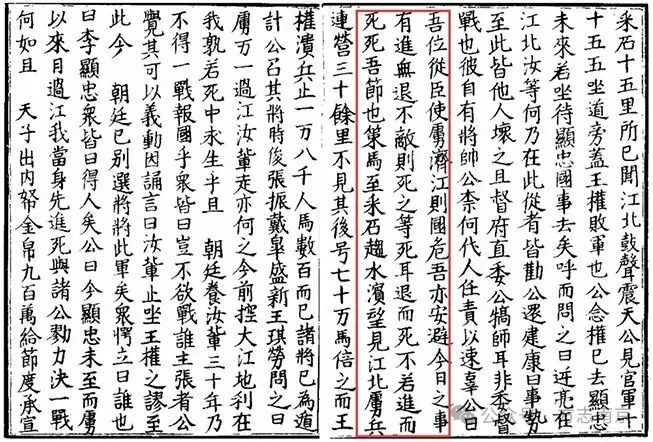 采石十五里所已聞江北鼓聲震天公見官軍十
十五五坐道旁蓋王權敗軍也公念權已去顯忠
未來若坐待顯忠國事去矣呼而問之曰近虜在
江北汝等何乃在此從者皆勸公還建康曰事勢
至此皆他人壞之且督府直委公犒師耳非委督
戰也彼自有將帥公柰何代人任責以速辜公曰
吾位從臣使虜濟江則國危吾亦安避今日之事
有進無退不敵則死之等死耳退而死不若進而
死死吾節也策馬至采石趨水濱望見江北虜兵
連營三十餘里不見其後号七十万馬倍之而王
權潰兵止一万八千人馬數百而已諸將已為遁
計公召其將時俊張振戴皋盛新王琪勞問之曰
虜万一過江汝輩走亦何之今前控大江地利在
我孰若死中求生乎且 朝廷養汝輩三十年乃
不得一戰報國乎衆皆曰豈不欲戰誰主張者公
覺其可以義動因誦言曰汝輩止坐王權之謬至
此今 朝廷已別選將將此軍矣衆愕立曰誰也
曰李顯忠衆皆曰得人矣公曰今顯忠未至而虜
以來月過江我當身先進死與諸公勠力決一戰
何如且 天子出内帑金帛九百萬給節度承宣
公众号